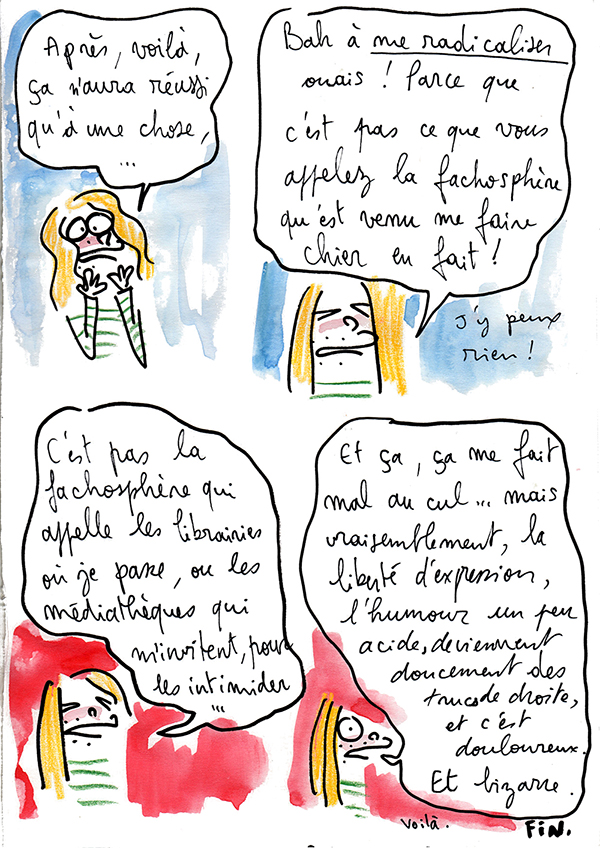 Après, voilà,
ça n'aura réussi
qu'à une chose,
...
Bah à me radicaliser
ouais ! Parce que
c'est pas ce que vous
appelez la fachosphère
qu'est venu me faire
chier en fait !
J'y peux
rien !
C'est pas la
fachosphère qui
appelle les librairies
où je passe, ou les
médiathèques qui
m'invitent, pour
les intimider
...
Et ça, ça me fait
mal au cul... mais
vraisemblement, la
liberté d'expression,
l'humour un peu
acide, deviennent
doucement des
trucs de droite,
et c'est
douloureux.
Et bizarre.
voilà.
FiN.